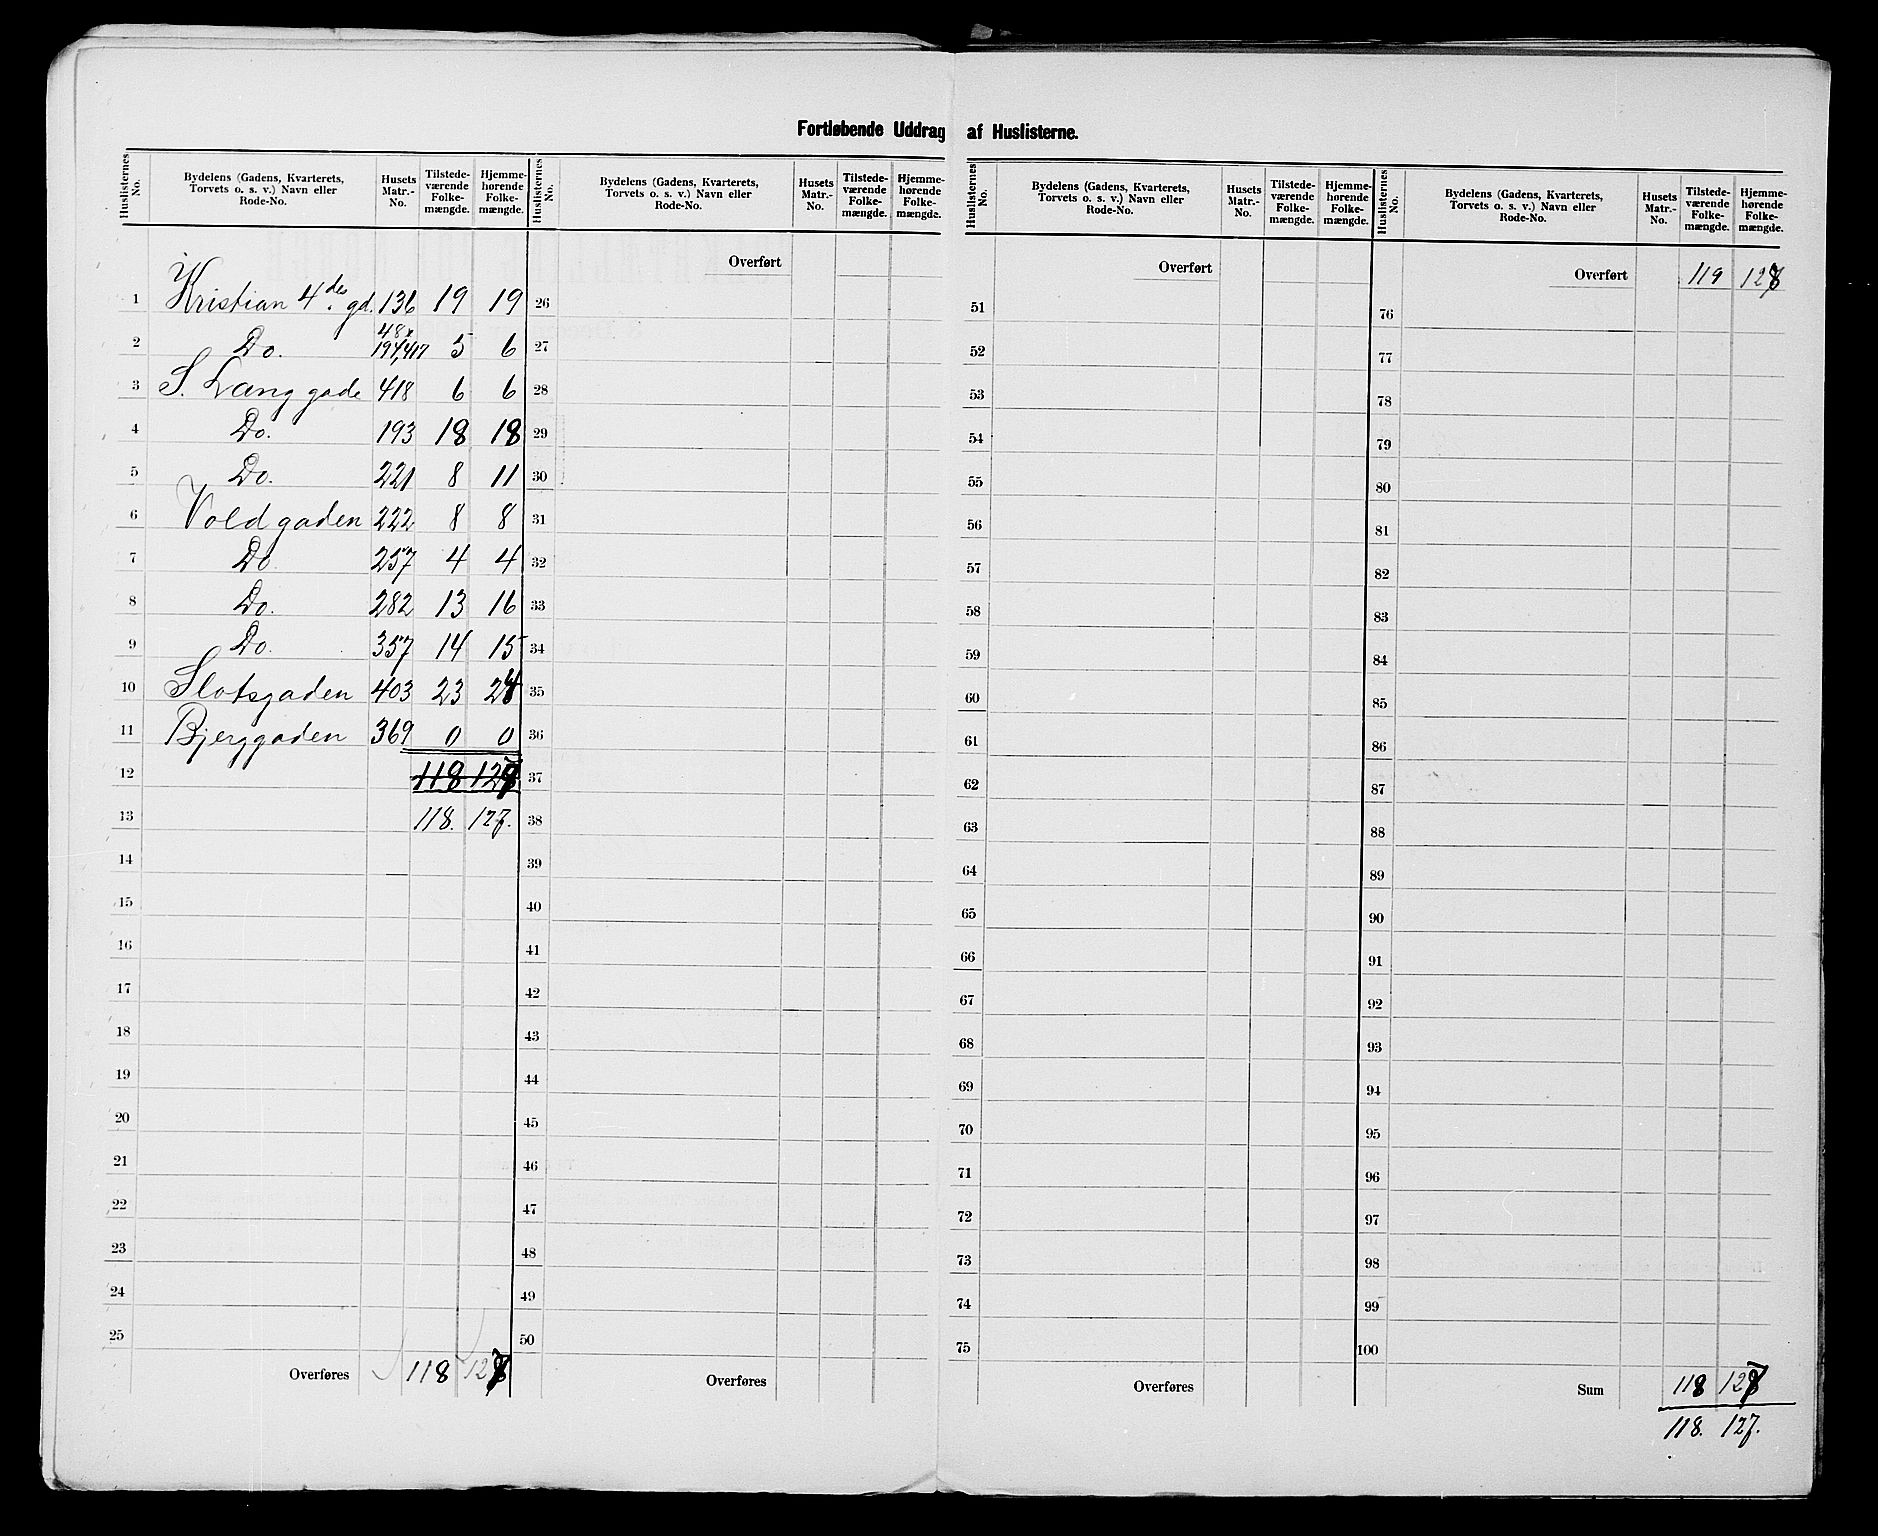 Fortløbende Uddrag af Huslisterne.
Huslisternes No. | Bydelens (Gadens, Kvarterets, Torvets o. s. v.) Navn eller Rode-No. | Husets Matr.-No. | Tilstede-værende Folke-mængde. | Hjemme-hørende Folke-mængde.
1 Kristian 4des gd. 136 19 19
2 Do. 48x 194,417 5 6
3 S. Lang gade 418 6 6
4 Do. 193 18 18
5 Do. 221 8 11
6 Vold gaden 222 8 8
7 Do 257 4 4
8 Do. 282 13 16
9 Do. 357 14 15
10 Slotsgaden 403 23 24
11 Bjerggaden 369 0 0
12 118 127
13 118. 127.
14
15
16
17
18
19
20
21
22
23
24
25
Overføres 118 127
Huslisternes No. | Bydelens (Gadens, Kvarterets, Torvets o. s. v.) Navn eller Rode-No. | Husets Matr.-No. | Tilstede-værende Folke-mængde. | Hjemme-hørende Folke-mængde.
Overført
26
27
28
29
30
31
32
33
34
35
36
37
38
39
40
41
42
43
44
45
46
47
48
49
50
Overføres
Huslisternes No. | Bydelens (Gadens, Kvarterets, Torvets o. s. v.) Navn eller Rode-No. | Husets Matr.-No. | Tilstede-værende Folke-mængde. | Hjemme-hørende Folke-mængde.
Overført
51
52
53
54
55
56
57
58
59
60
61
62
63
64
65
66
67
68
69
70
71
72
73
74
75
Overføres
Huslisternes No. | Bydelens (Gadens, Kvarterets, Torvets o. s. v.) Navn eller Rode-No. | Husets Matr.-No. | Tilstede-værende Folke-mængde. | Hjemme-hørende Folke-mængde.
Overført 119 127
76
77
78
79
80
81
82
83
84
85
86
87
88
89
90
91
92
93
94
95
96
97
98
99
100
Sum 118 127
118. 127.